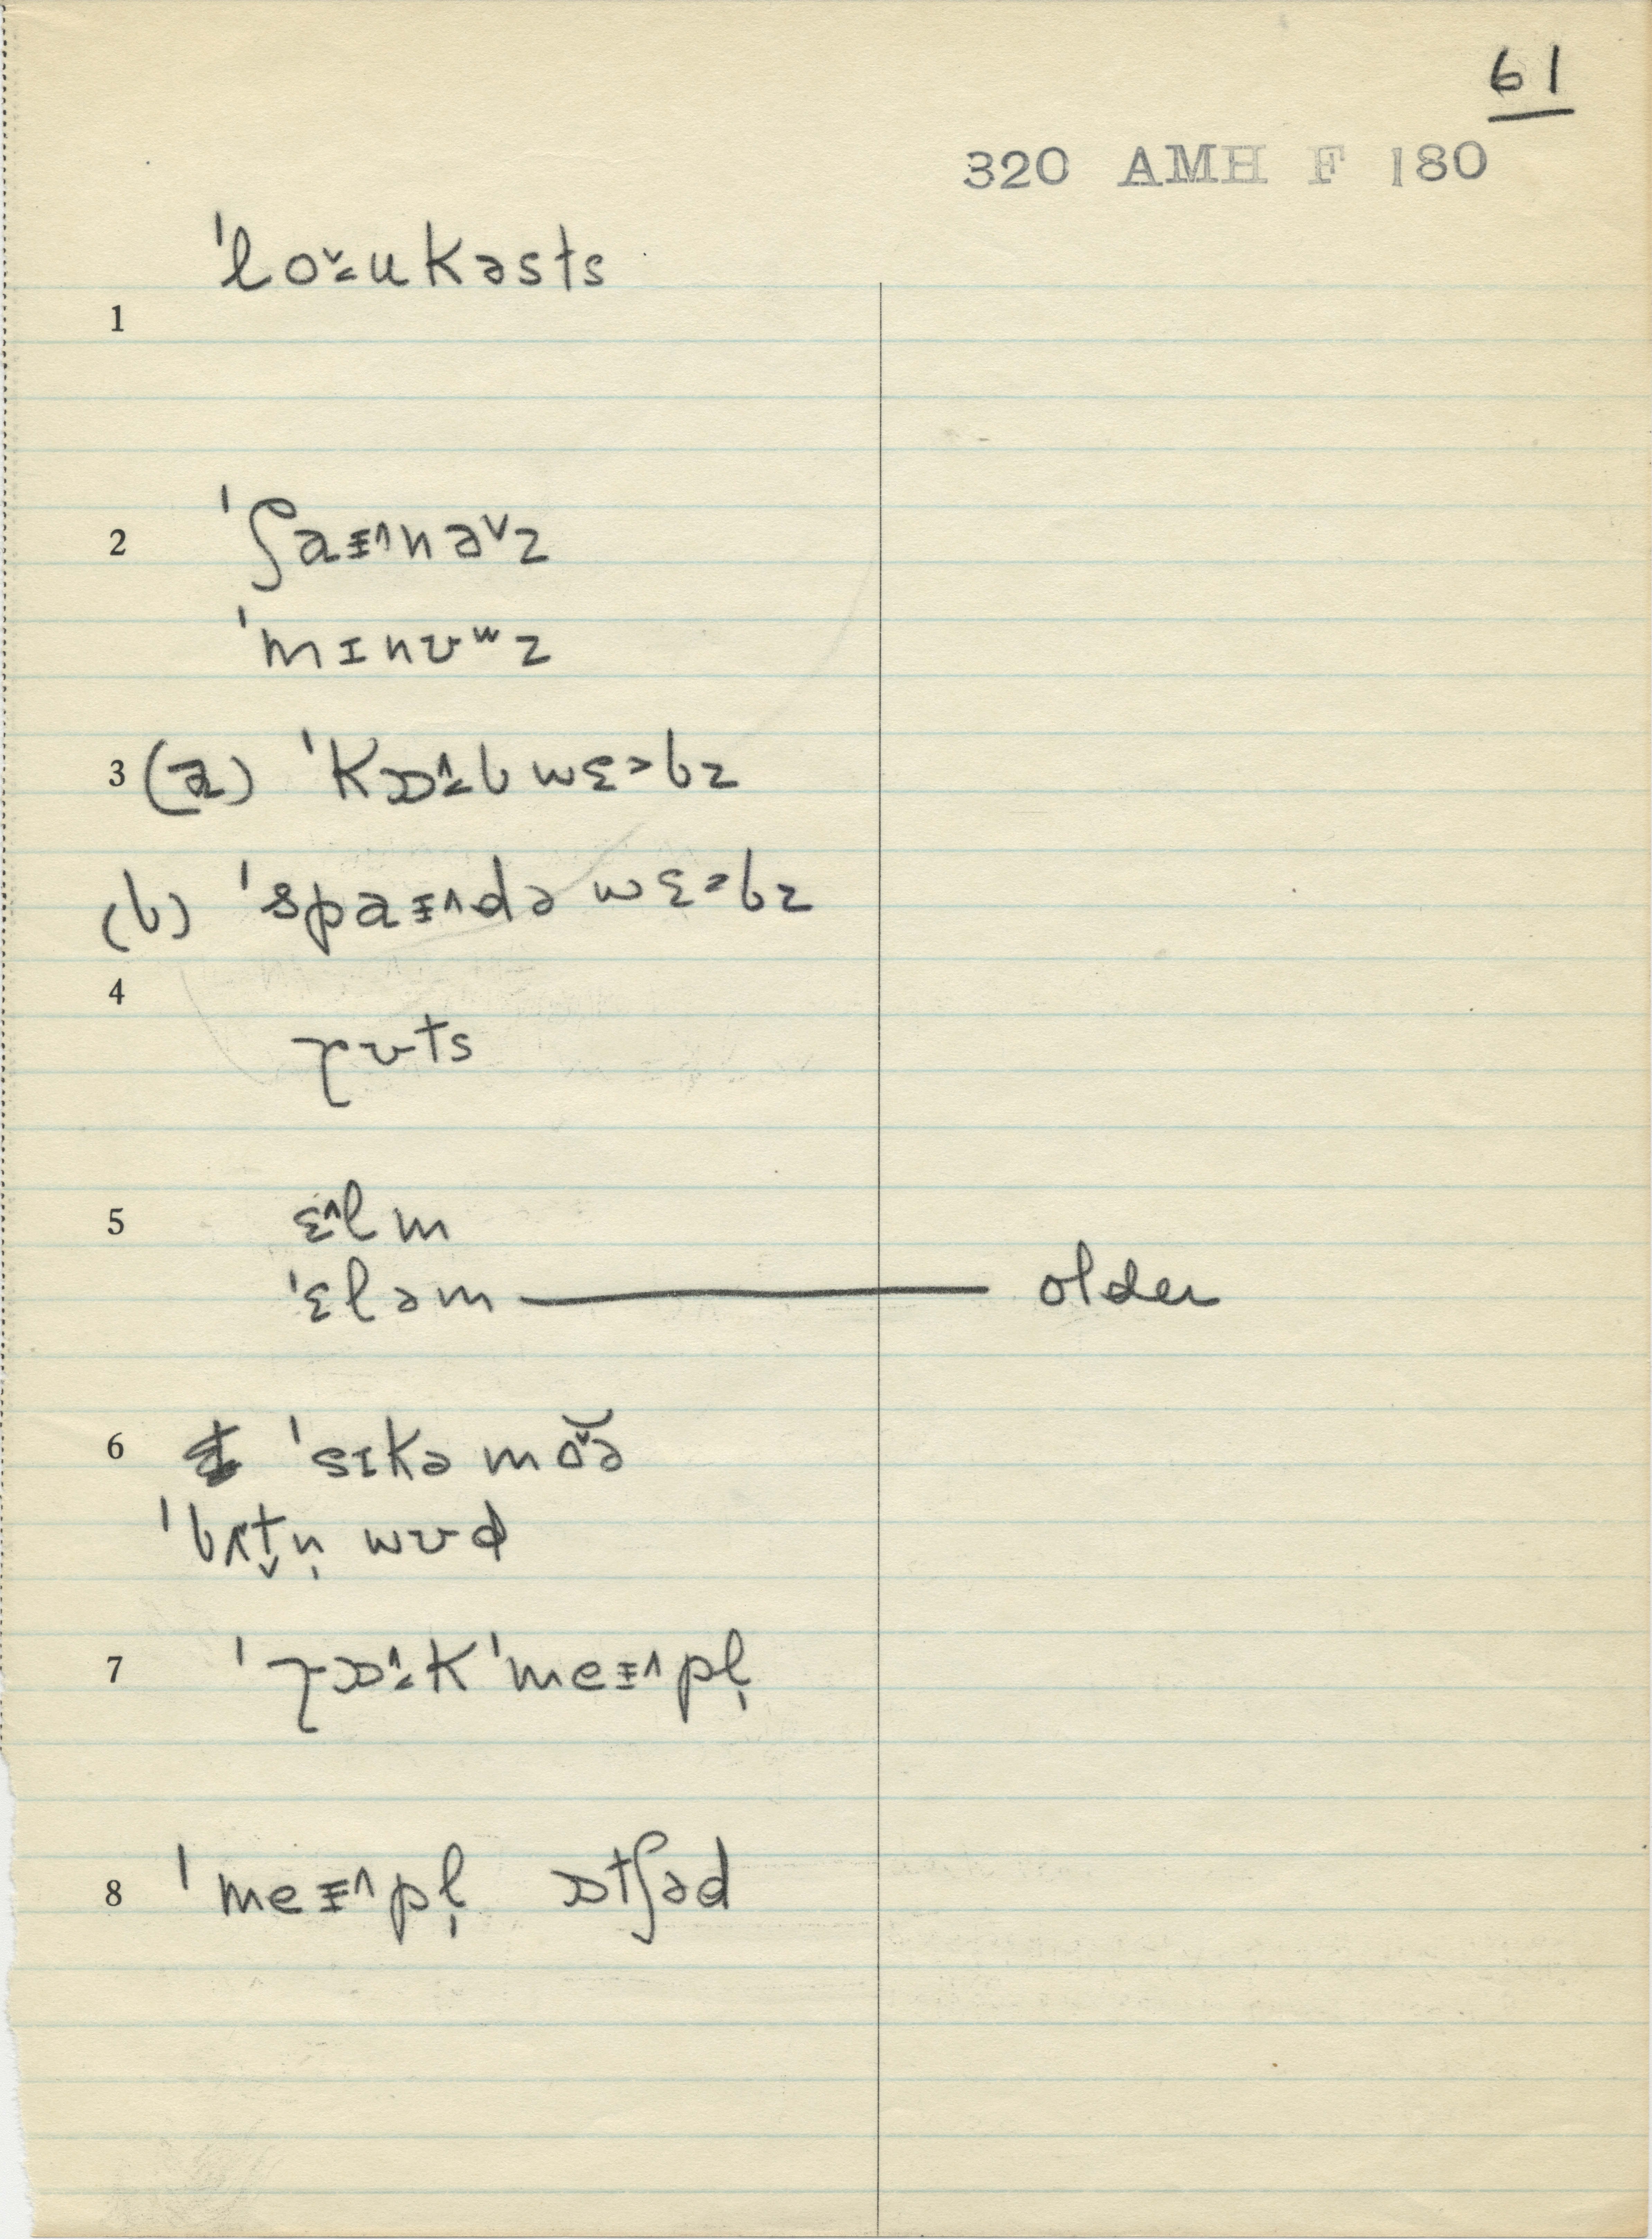 61
320 AMH F 180
ˈloᵛ˗u kəsts
1
2 ˈʃaɪ^nəᵛz
ˈmɪnʊʷz
3 (a) ˈkɒ^˗b wɛ>bz
(b) ˈspaɪ^də wɛ>bz
4
rʊts
5 ɛ^lm
ˈɛləm — older
6 ˈsɪkə moᵛə
ˈbʌt̬n̩ wʊd
7 ˈrɒ^˗k ˈmeɪ^pl̩
8 ˈmeɪ^pl̩ ɒtʃəd